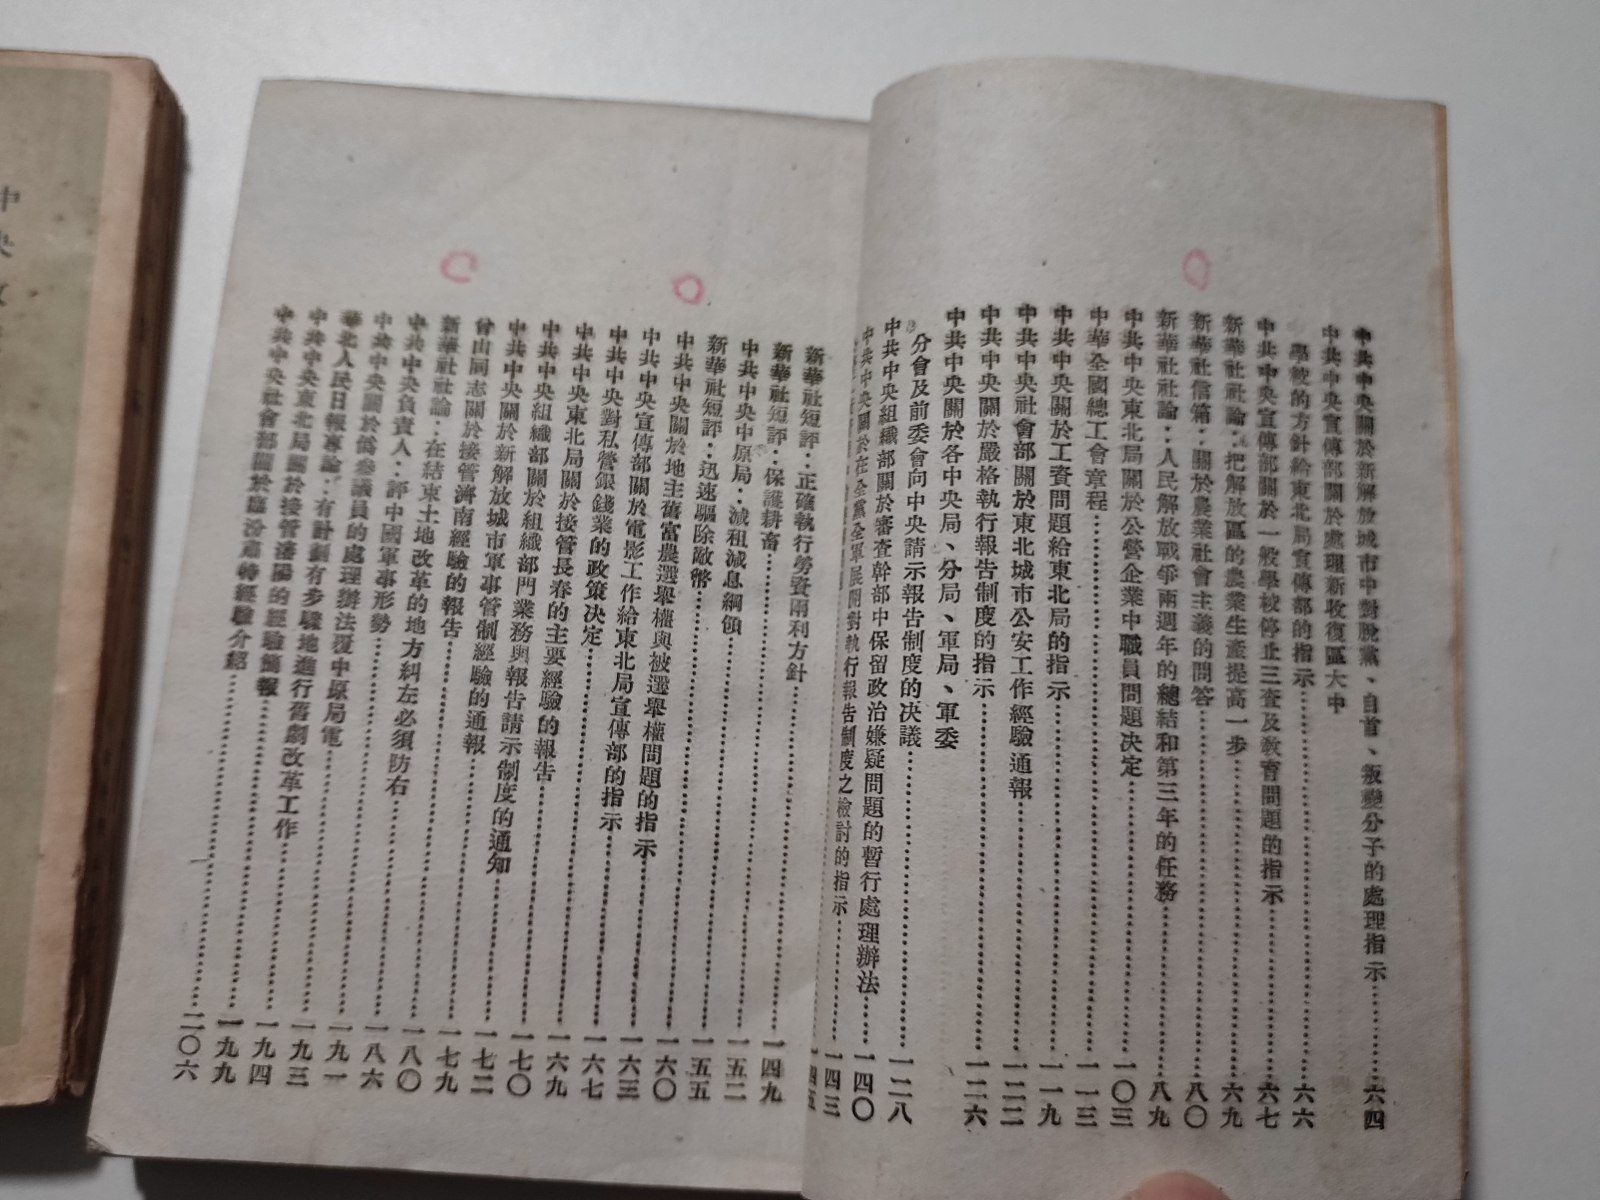 中共中央關於新解放城市中對脫黨、自首、叛變分子的處理指示…………六四
中共中央宣傳部關於處理新收復區大中
學校的方針給東北局宣傳部的指示…………六六
中共中央宣傳部關於一般學校停止三查及教育問題的指示…………六七
新華社社論：把解放區的農業生產提高一步…………六九
新華社信箱：關於農業社會主義的問答…………八〇
新華社社論：人民解放戰爭兩週年的總結和第三年的任務…………八九
中共中央東北局關於公營企業中職員問題決定…………一〇三
中華全國總工會章程…………一一三
中共中央關於工資問題給東北局的指示…………一一九
中共中央社會部關於東北城市公安工作經驗通報…………一二二
中共中央關於嚴格執行報告制度的指示…………一二六
中共中央關於各中央局、分局、軍局、軍委
分會及前委會向中央請示報告制度的決議…………一二八
中共中央組織部關於審查幹部中保留政治嫌疑問題的暫行處理辦法…………一四〇
中共中央關於在全黨全軍展開對執行報告制度之檢討的指示…………一四三
一四五
新華社短評：正確執行勞資兩利方針…………一四九
新華社短評：保護耕畜…………一五二
中共中央中原局：減租減息綱領…………一五五
新華社短評：迅速驅除敵幣…………一六〇
中共中央關於地主舊富農選舉權與被選舉權問題的指示…………一六三
中共中央宣傳部關於電影工作給東北局宣傳部的指示…………一六七
中共中央對私營銀錢業的政策決定…………一六九
中共中央東北局關於接管長春的主要經驗的報告…………一七〇
中共中央組織部關於組織部門業務與報告請示制度的通知…………一七二
中共中央關於新解放城市軍事管制經驗的通報…………一七九
曾山同志關於接管濟南經驗的報告…………一八〇
新華社社論：在結束土地改革的地方糾左必須防右…………一八六
中共中央負責人：評中國軍事形勢…………一九一
中共中央關於僞參議員的處理辦法覆中原局電…………一九三
華北人民日報專論：有計劃有步驟地進行舊劇改革工作…………一九四
中共中央東北局關於接管瀋陽的經驗簡報…………一九九
中共中央社會部關於臨汾肅特經驗介紹…………二〇六